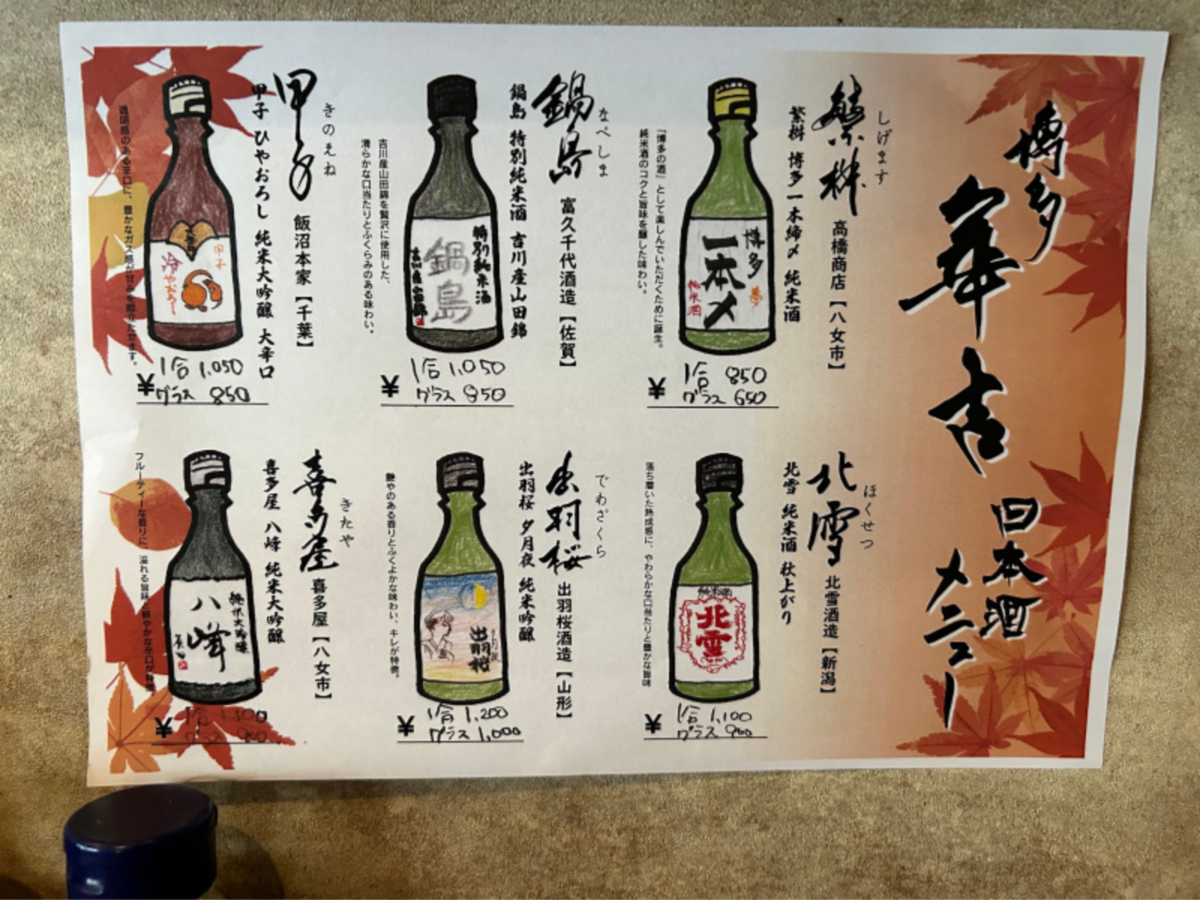 博多
華吉
日本酒
メニュー
しげます
繁桝
高橋商店【八女市】
繁桝 博多一本締〆 純米酒
「博多の酒」として楽しんでいただくために誕生。
純米酒のコクと旨味を醸した味わい。
博多
一本〆
純米酒
¥
1合 850
グラス 650
なべしま
鍋島
富久千代酒造【佐賀】
鍋島 特別純米酒 吉川産山田錦
吉川産山田錦を贅沢に使用した、
滑らかな口当たりとふくらみのある味わい。
特別純米酒
鍋島
吉川産山田錦
¥
1合 1,050
グラス 850
きのえね
甲子
飯沼本家【千葉】
甲子 ひやおろし 純米大吟醸 大辛口
透明感のある辛口に、豊かなガス感が
甲子
冷やおろし
¥
1合 1,050
グラス 850
ほくせつ
北雪
北雪酒造【新潟】
北雪 純米酒 秋上がり
落ち着いた熟成感に、やわらかな口当たりと豊かな旨味
純米酒
北雪
¥
1合 1,100
グラス 900
でわざくら
出羽桜
出羽桜酒造【山形】
出羽桜 夕月夜 純米吟醸
艶やのある香りとふくよかな味わい、キレが特徴。
出羽桜
¥
1合 1,200
グラス 1,000
きたや
喜多屋
喜多屋【八女市】
喜多屋 八峰 純米大吟醸
フルーティーな香りに、溢れる旨味と軽やかな辛口が特徴。
純米大吟醸
八峰
¥
1合 1,300
グラス 900